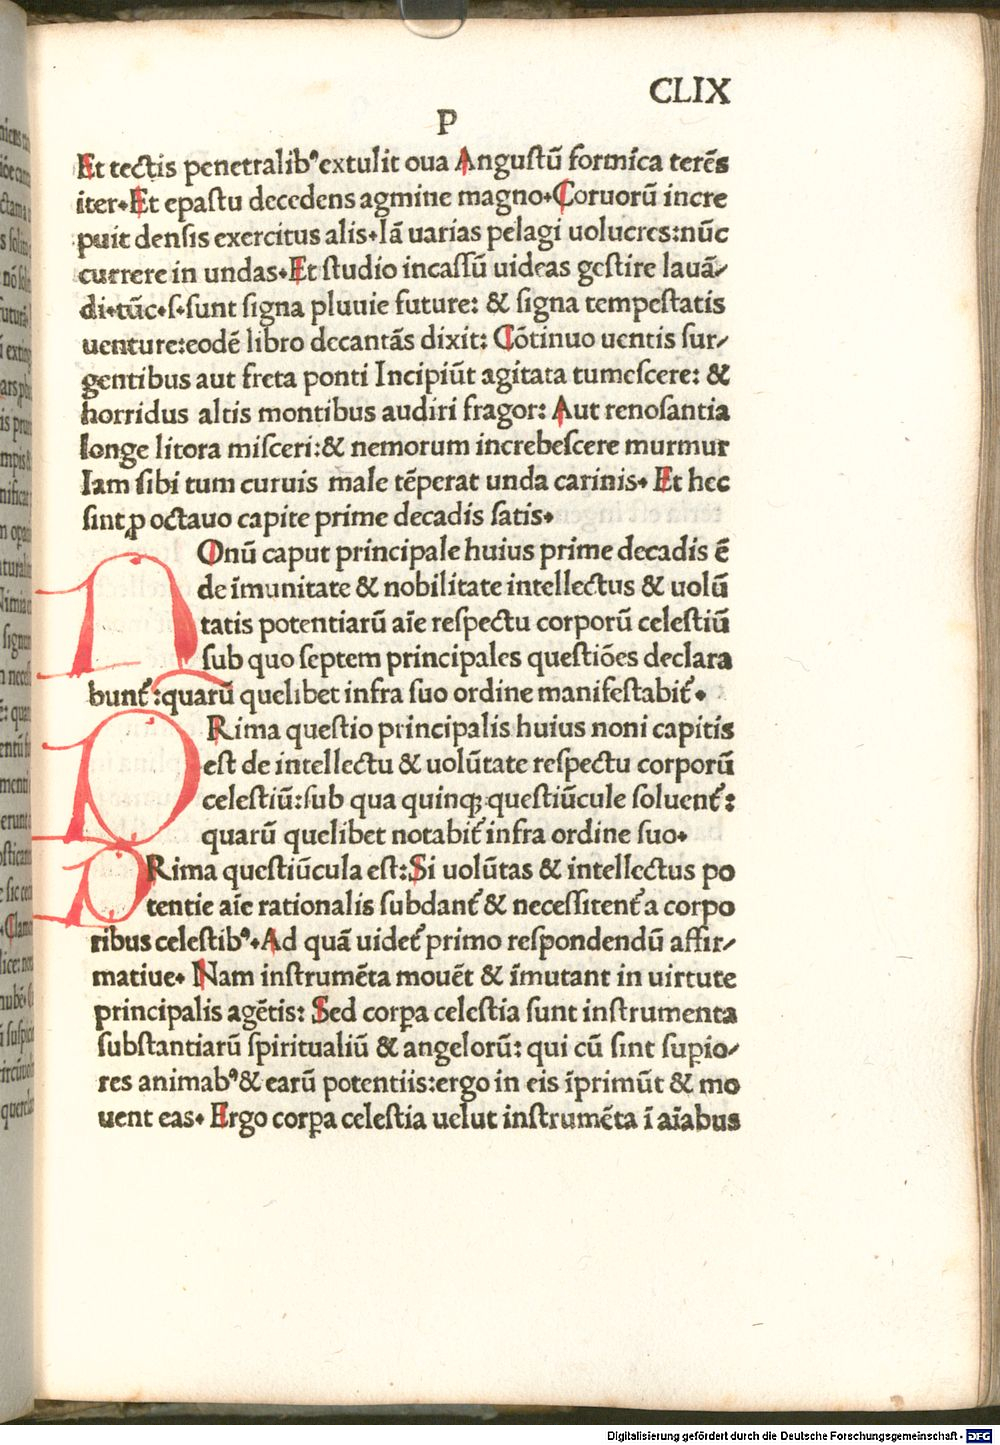 CLIX
P
Et tectis penetralibꝰ extulit oua Angustū formica terēs
iter. Et epastu decedens agmine magno. Coruorū incre
puit densis exercitus alis. Iā uarias pelagi uolucres: nūc
currere in undas. Et studio incassū uideas gestire lauā-
di. tūc. s. sunt signa pluuie future: & signa tempestatis
uenture: eodē libro decantās dixit: Cōtinuo uentis sur-
gentibus aut freta ponti Incipiūt agitata tumescere: &
horridus altis montibus audiri fragor: Aut renosantia
longe litora misceri: & nemorum increbescere murmur
Iam sibi tum curuis male tēperat unda carinis. Et hec
sint ꝓ octauo capite prime decadis satis.
NOnū caput principale huius prime decadis ē
de īmunitate & nobilitate intellectus & uolū
tatis potentiarū aīe respectu corporū celestiū
sub quo septem principales questiōes declara
bunt᷑: quarū quelibet infra suo ordine manifestabit᷑.
PRima questio principalis huius noni capitis
est de intellectu & uolūtate respectu corporū
celestiū: sub qua quinqꝫ questiūcule soluent᷑:
quarū quelibet notabit᷑ infra ordine suo.
PRima questiūcula est: Si uolūtas & intellectus po
tentie aīe rationalis subdant᷑ & necessitent᷑ a corpo
ribus celestibꝰ. Ad quā uidet᷑ primo respondendū affir-
matiue. Nam instrumēta mouēt & īmutant in uirtute
principalis agētis: Sed corꝑa celestia sunt instrumenta
substantiarū spiritualiū & angelorū: qui cū sint suꝑio-
res animabꝰ & earū potentiis: ergo in eis īprimūt & mo
uent eas. Ergo corꝑa celestia uelut instrumēta ī aīabus
Digitalisierung gefördert durch die Deutsche Forschungsgemeinschaft - DFG